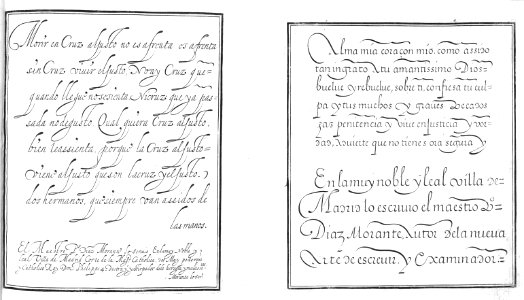 Morir en Cruz al justo no es afrenta es afrenta
sin Cruz vivir el justo. No ay Cruz que
quando llegue no se sienta Ni cruz que ya pas
sada no de gusto. Qual quiera Cruz al justo
bien le a sienta, porque la Cruz al justo
viene al justo que son la cruz y el justo, 
dos hermanos, que siempre van a seidos de
las manos.
El Maestro P.º Diaz Morante lo escriuio
Villa de Madrid Corte de la
Catholico Rey Don Philippe 4
Alma mia coraçon mio, como as sido
tan ingrato A tu amantissimo Dios
buelue y rebuelue, sobre ti, confiesa tu cul
pa y tus muchos y graues peccados
haz penitencia y viue en justicia y ver
dad, Aduierte que no tienes ora segura y
En la muy noble y leal villa de
Madrid lo escriuio el maestro P.º
Diaz Morante, Autor de la nueua
Arte de escreuir, y Examinador